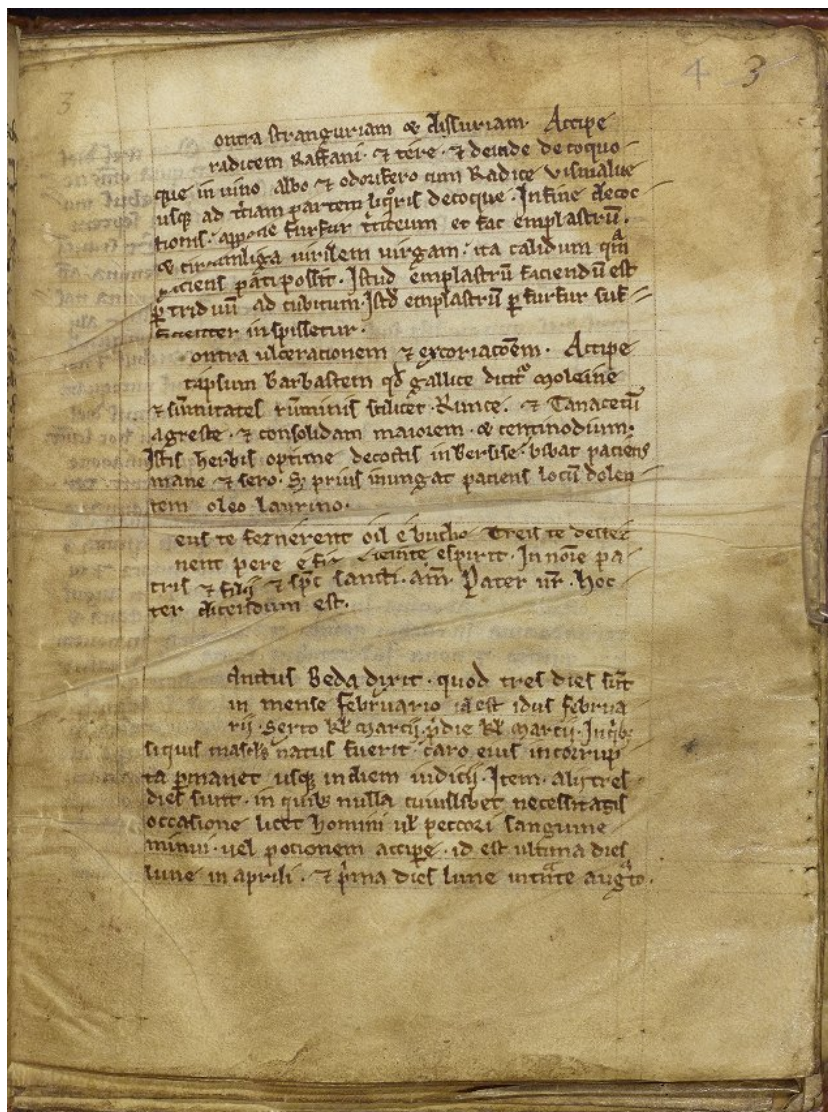 3 4 3
ontra stranguriam & dissuriam. Accipe
radicem Raffani. ⁊ tere. ⁊ deinde de coquo
que in vino albo ⁊ odorifero cum Radice vismalue
usq; ad t̾ciam partem liq̾ris decoque. In fine decoc
tionis. appone furfur t̾ticeum et fac emplastrū.
& circumliga virilem virgam. ita calidum qm̄
paciens pati possit. Istud emplastrū faciendū est
ꝑ triduū ad cubitum. Istđ emplastrū ꝑ furfur suf
ficienter inspissetur.
ontra ulcerationem ⁊ excoriacōem. Accipe
tapsum barbastem qđ gallice dicit᷑ moleine
⁊ sūmitates rūminis scilicet. Runce. ⁊ Tanacetū
agreste. ⁊ consolidam maiorem. & centinodium.
Istis herbis optime decoctis in bersise. bibat paciens
mane ⁊ sero. S; prius inungat paciens locū dolen
tem oleo laurino.
eus te
nent pere espirit. In noīe pa
tris ⁊ filij ⁊ sp̄c sancti. am̄. Pater nr̄. hoc
ter dicendum est.
anctus Beda dixit. quod tres dies sūt
in mense februario id est idus februa
rij. Sexto kł marcij. p̾die kł marcij. In q̾b;
siquis masc̾ls natus fuerit. caro eius incorrup
ta ꝑmanet usq; in diem iudicij. Item. alij tres
dies sunt. in quib; nulla cuiuslibet necessitatis
occasione licet homini uł peccori sanguine
minui. uel pocionem accipe. id est ultima dies
lune in aprili. ⁊ p̾ma dies lune intrāte aug̾to.